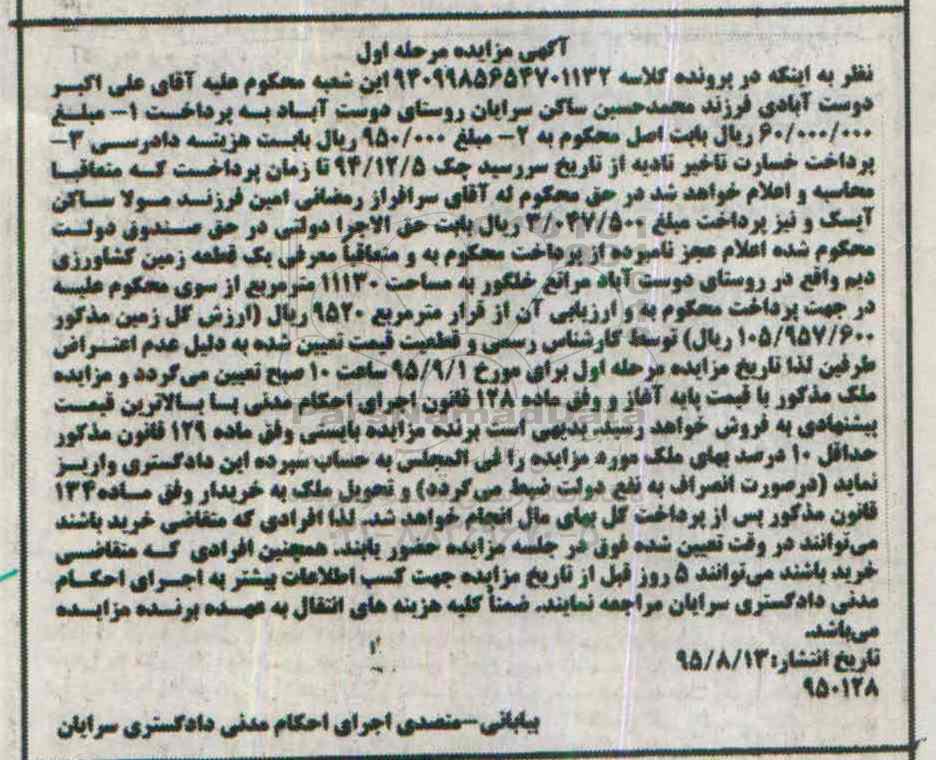 آگهی مزایده مرحله اول
نظر به اینکه در پرونده کلاسه ۹۴۰۹۹۸۵۶۵۴۷۰۱۱۳۲ این شعبه محکوم علیه آقای علی اکبر
دوست آبادی فرزند محمدحسین ساکن سرایان روستای دوست آباد به پرداخت ۱- مبلغ
۶۰/۰۰۰/۰۰۰ ریال بابت اصل محکوم به ۲- مبلغ ۹۵۰/۰۰۰ ریال بابت هزینه دادرسی ۳-
پرداخت خسارت تاخیر تادیه از تاریخ سررسید چک ۹۴/۱۲/۵ تا زمان پرداخت که متعاقبا
محاسبه و اعلام خواهد شد در حق محکوم له آقای سرافراز رمضانی امین فرزند مولا ساکن
آیسک و نیز پرداخت مبلغ ۳/۰۴۷/۵۰۰ ریال بابت حق الاجرا دولتی در حق صندوق دولت
محکوم شده اعلام عجز نامبرده از پرداخت محکوم به و متعاقباً معرفی یک قطعه زمین کشاورزی
دیم واقع در روستای دوست آباد مراتع خلکور به مساحت ۱۱۱۳۰ مترمربع از سوی محکوم علیه
در جهت پرداخت محکوم به و ارزیابی آن از قرار مترمربع ۹۵۲۰ ریال (ارزش کل زمین مذکور
۱۰۵/۹۵۷/۶۰۰ ریال) توسط کارشناس رسمی و قطعیت قیمت تعیین شده به دلیل عدم اعتراض
طرفین لذا تاریخ مزایده مرحله اول برای مورخ ۹۵/۹/۱ ساعت ۱۰ صبح تعیین می‌گردد و مزایده
ملک مذکور با قیمت پایه آغاز و وفق ماده ۱۲۸ قانون اجرای احکام مدنی با بالاترین قیمت
پیشنهادی به فروش خواهد رسید. بدیهی است برنده مزایده بایستی وفق ماده ۱۲۹ قانون مذکور
حداقل ۱۰ درصد بهای ملک مورد مزایده را فی المجلس به حساب سپرده این دادگستری واریز
نماید (درصورت انصراف به نفع دولت ضبط می‌گردد) و تحویل ملک به خریدار وفق ماده ۱۳۴
قانون مذکور پس از پرداخت کل بهای مال انجام خواهد شد. لذا افرادی که متقاضی خرید باشند
می‌توانند در وقت تعیین شده فوق در جلسه مزایده حضور یابند. همچنین افرادی که متقاضی
خرید باشند می‌توانند ۵ روز قبل از تاریخ مزایده جهت کسب اطلاعات بیشتر به اجرای احکام
مدنی دادگستری سرایان مراجعه نمایند. ضمناً کلیه هزینه های انتقال به عهده برنده مزایده
می‌باشد.
تاریخ انتشار: ۹۵/۸/۱۳
۹۵۰۱۲۸
بیابانی-متصدی اجرای احکام مدنی دادگستری سرایان